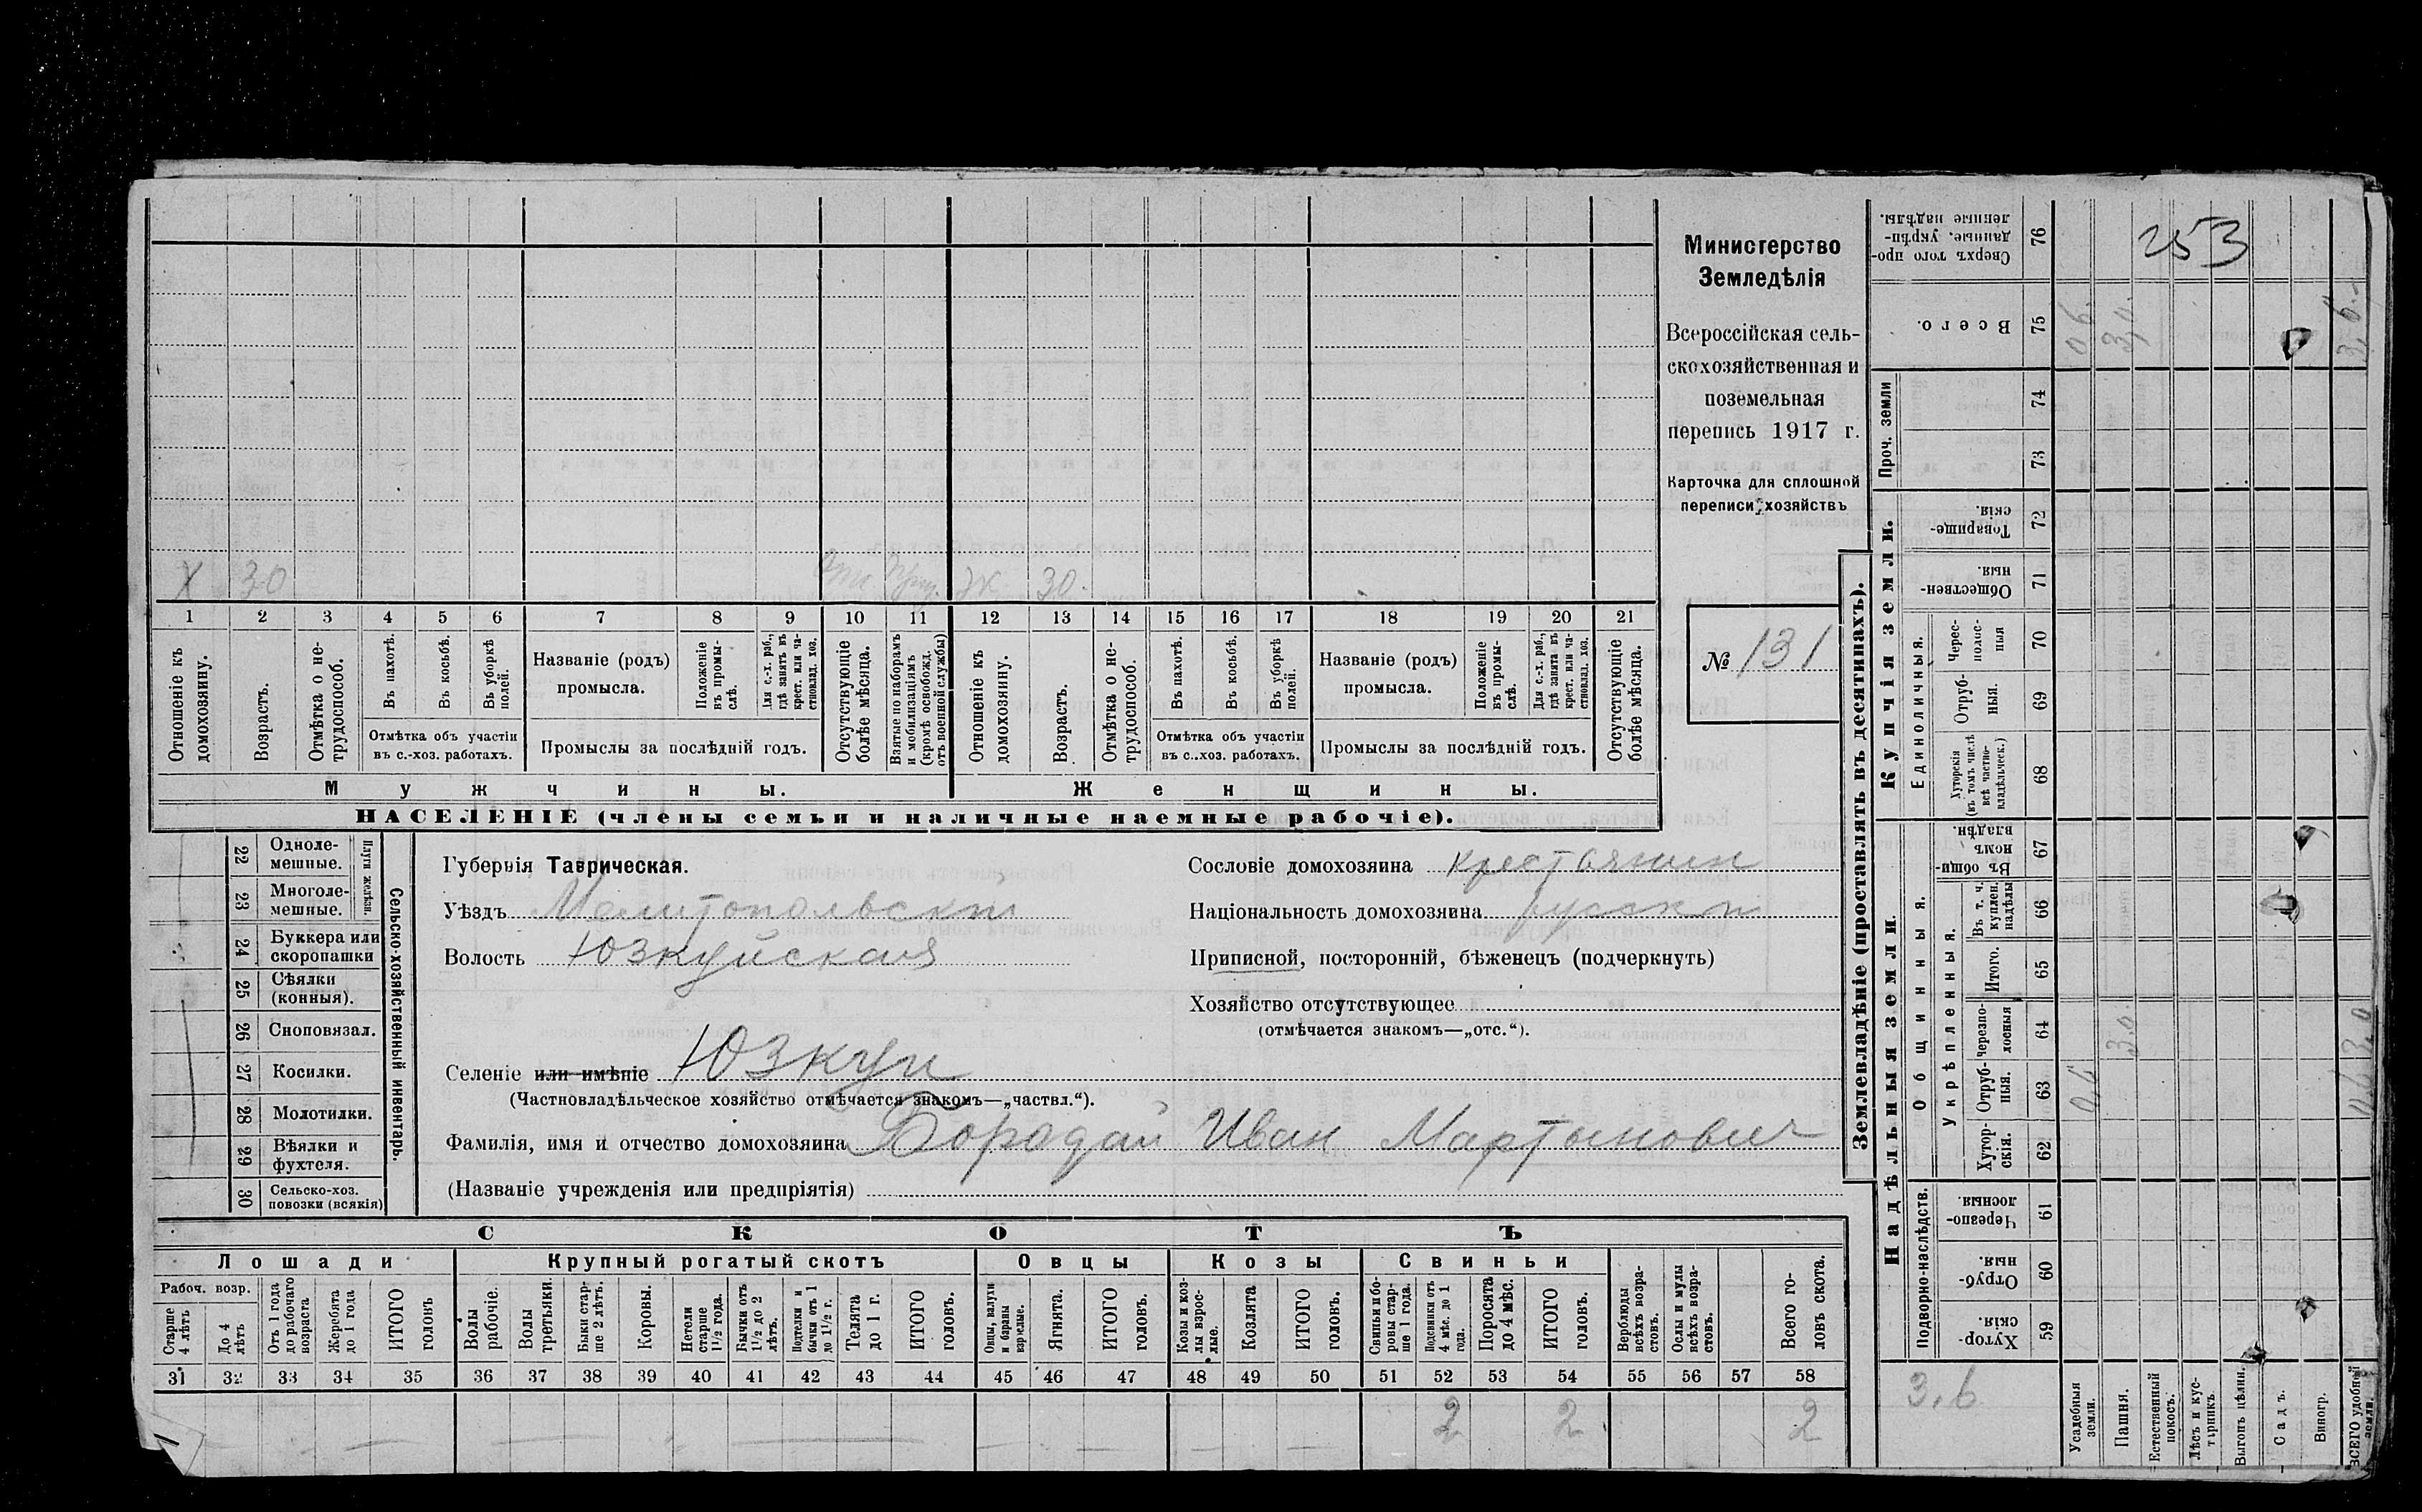 Министерство
Земледѣлія
Всероссійская сель-
скохозяйственная и
поземельная
перепись 1917 г.
Карточка для сплошной
переписи хозяйствъ
№ 131
Х 30 Отс. Ж 30.
1 2 3 4 5 6 7 8 9 10 11 12 13 14 15 16 17 18 19 20 21
Отношеніе къ домохозяину.
Возрастъ.
Отмѣтка о не-трудоспособ.
Въ пахотѣ.
Въ косьбѣ.
Въ уборкѣ полей.
Отмѣтка объ участіи
въ с.-хоз. работахъ.
Названіе (родъ)
промысла.
Положеніе въ промы-слѣ.
Для с.-х. раб., гдѣ занятъ въ крест. или ча-стновлад. хоз.
Промыслы за послѣдній годъ.
Отсутствующіе болѣе мѣсяца.
Взятые по наборамъ и мобилизаціямъ (кромѣ освобожд. отъ военной службы)
Отношеніе къ домохозяину.
Возрастъ.
Отмѣтка о не-трудоспособ.
Въ пахотѣ.
Въ косьбѣ.
Въ уборкѣ полей.
Отмѣтка объ участіи
въ с.-хоз. работахъ.
Названіе (родъ)
промысла.
Положеніе въ промы-слѣ.
Для с.-х. раб., гдѣ занята въ крест. или ча-стновлад. хоз.
Промыслы за послѣдній годъ.
Отсутствующіе болѣе мѣсяца.
Мужчины. Женщины.
НАСЕЛЕНІЕ (члены семьи и наличные наемные рабочіе).
Сельско-хозяйственный инвентарь.
Плуги желѣзн.
22 Одноле-мешные.
23 Многоле-мешные.
24 Буккера или скоропашки
25 Сѣялки (конныя).
26 Сноповязал.
27 Косилки.
28 Молотилки.
29 Вѣялки и фухтеля.
30 Сельско-хоз. повозки (всякія)
Губернія Таврическая.
Уѣздъ Мелитопольскій
Волость Юзкуйская
Сословіе домохозяина крестьянин
Національность домохозяина русскй
Приписной, посторонній, бѣженецъ (подчеркнуть)
Хозяйство отсутствующее
(отмѣчается знакомъ—„отс.“).
Селеніе или имѣніе Юзкуи
(Частновладѣльческое хозяйство отмѣчается знакомъ—„частвл.“).
Фамилія, имя и отчество домохозяина Борадай Иван Мартынович
(Названіе учрежденія или предпріятія)
СКОТЪ
Лошади Крупный рогатый скотъ Овцы Козы Свиньи
Рабоч. возр.
Старше 4 лѣтъ
До 4 лѣтъ
Отъ 1 года до рабочаго возраста
Жеребята до 1 года
ИТОГО головъ
Волы рабочіе.
Волы третьяки.
Быки стар-ше 2 лѣтъ.
Коровы.
Нетели старше 1½ года.
Бычки отъ 1½ до 2 лѣтъ.
Подтелки и бычки отъ 1 до 1½ г.
Телята до 1 г.
ИТОГО головъ.
Овцы, валухи и бараны взрослые.
Ягнята.
ИТОГО головъ.
Козы и коз-лы взрос-лые.
Козлята
ИТОГО головъ.
Свиньи и бо-ровы стар-ше 1 года.
Подсвинки отъ 4 мѣс. до 1 года.
Поросята до 4 мѣс.
ИТОГО головъ.
Верблюды всѣхъ возра-стовъ.
Ослы и мулы всѣхъ возра-стовъ.
Всего го-ловъ скота.
31 32 33 34 35 36 37 38 39 40 41 42 43 44 45 46 47 48 49 50 51 52 53 54 55 56 57 58
2 2 2
Землевладѣніе (проставлять въ десятинахъ).
253
Сверхъ того про-данные, укрѣп-ленные надѣлы. 76
Всего. 75 0 6. 3,0. 3,6.
Проч. земли
74
73
Купчія земли.
Товарище-скія. 72
Обществен-ныя. 71
Единоличныя.
Черес-полос-ныя 70
Отруб-ныя. 69
Хуторскія (въ томъ числѣ всѣ частно-владѣльческ.) 68
Надѣльныя земли.
Общинныя.
Въ общи-номъ владѣн. 67
Укрѣпленныя.
Въ т. ч. куплен. надѣлы 66
Итого. 65
Черезпо-лосныя 64 3,0. 3,0
Отруб-ныя. 63
Хутор-скія. 62
Подворно-наслѣдств.
Черезпо-лосныя 61
Отруб-ныя. 60
Хутор-скія. 59
3.6
Усадебныя земли.
Пашня.
Естественный покосъ.
Лѣсъ и кус-тарникъ.
Выгонъ цѣлин.
Садъ.
Виногр.
ВСЕГО удобной земли.